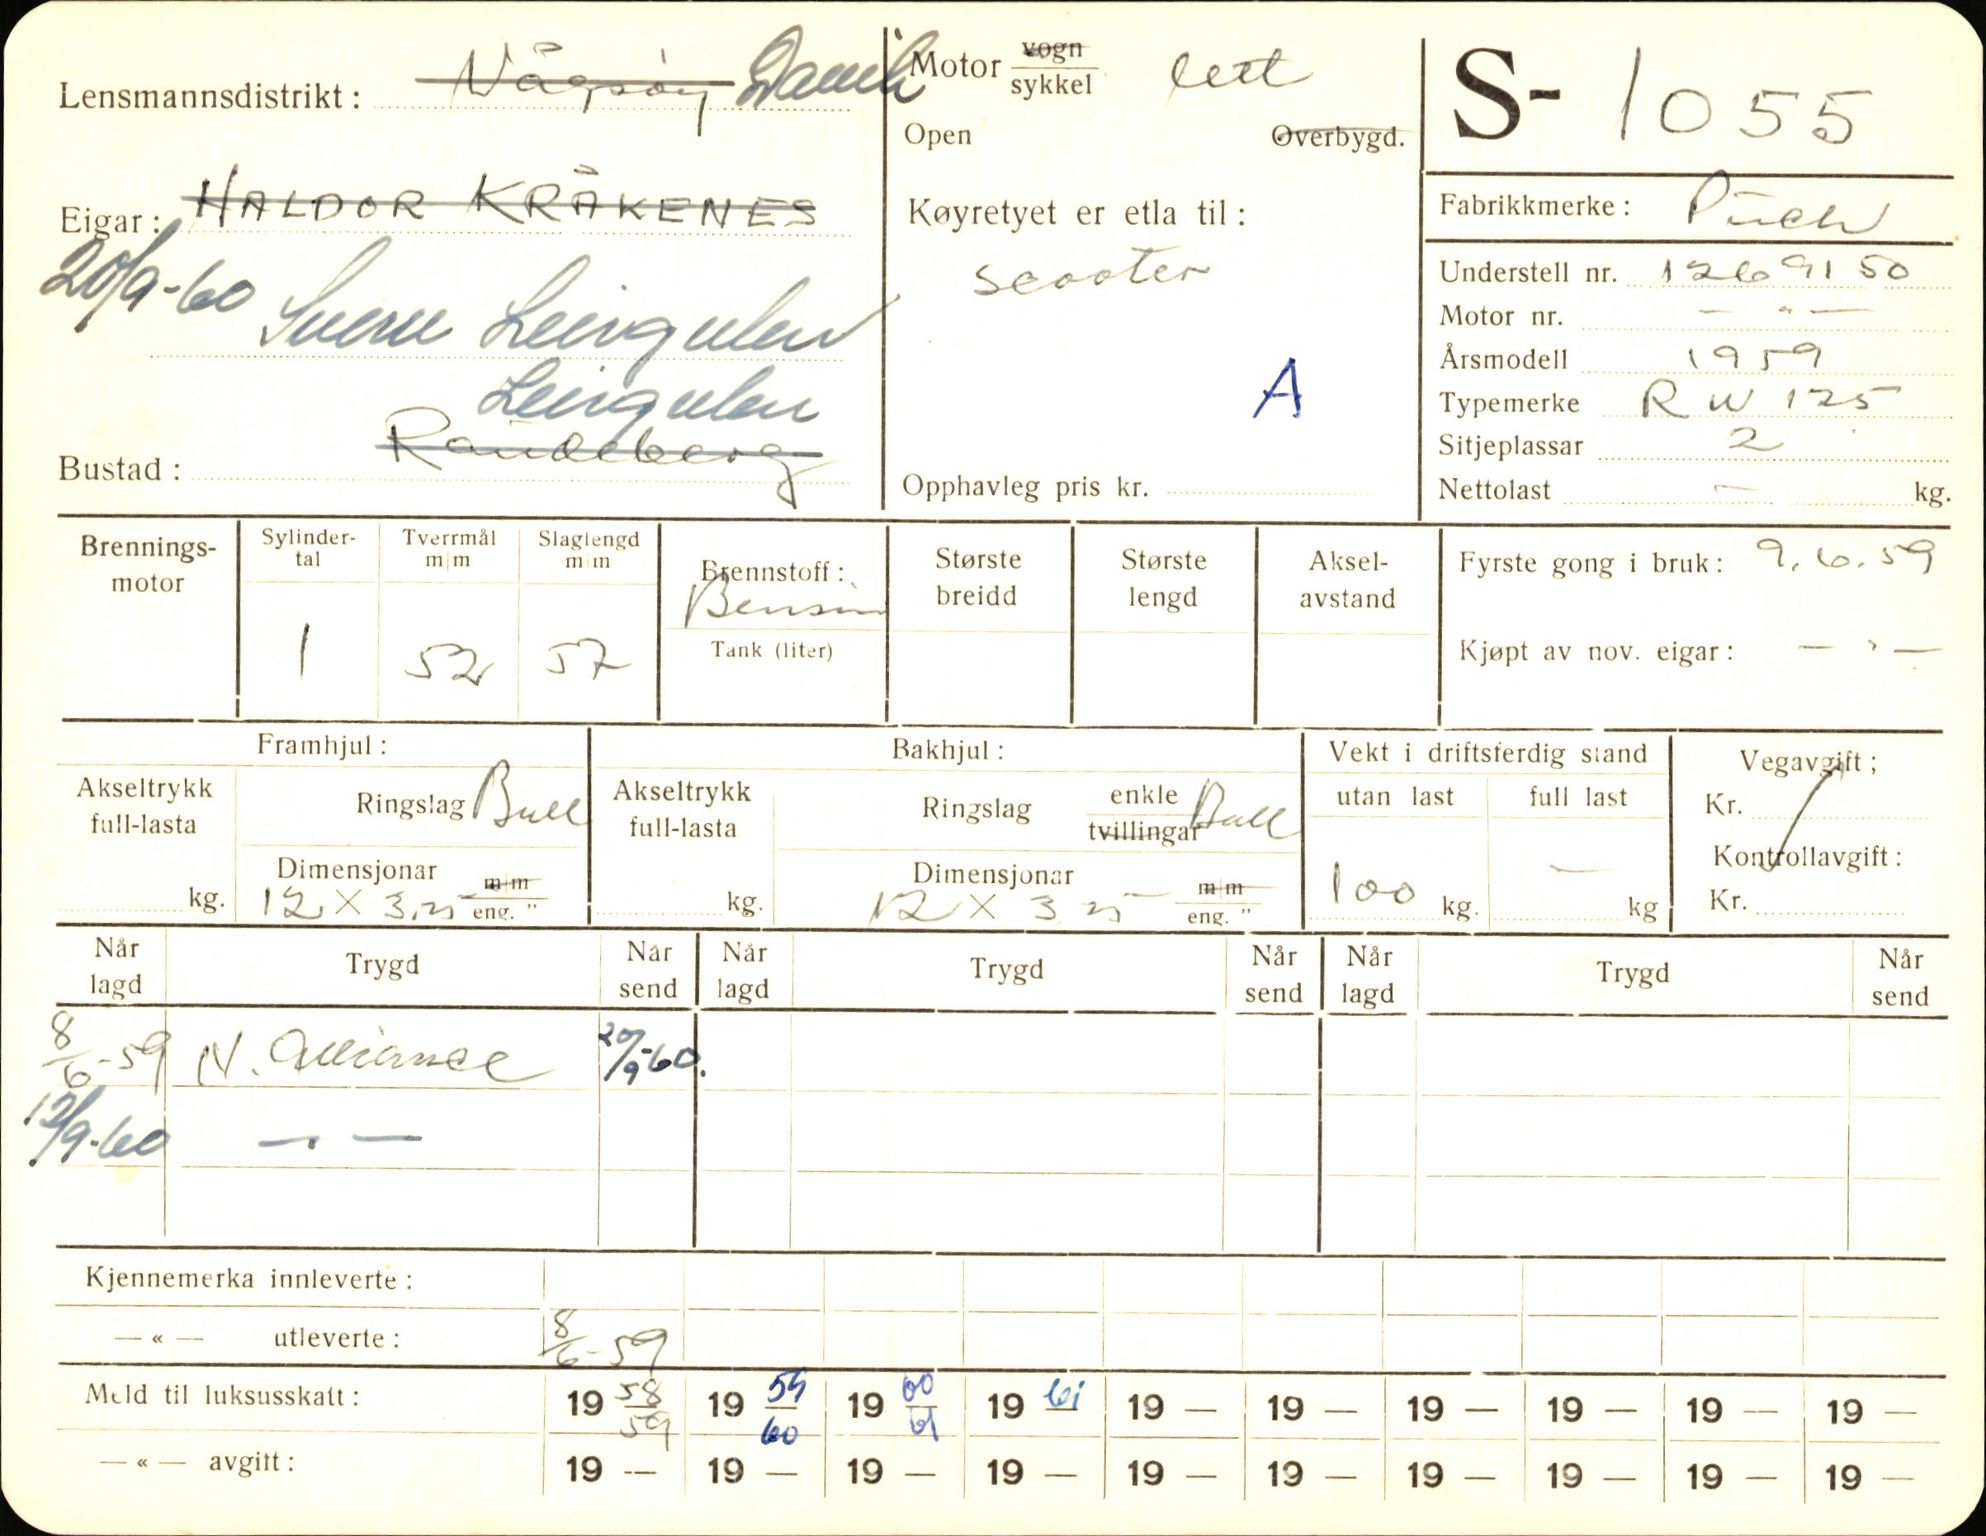 Lensmannsdistrikt: Vågsøy Davik
Eigar: HALDOR KRÅKENES
20/9-60 Sverre Leirgulen
Leirgulen
Bustad: Raudeberg
Motor vogn/sykkel lett
Open Overbygd.
Køyretyet er etla til:
scooter
A
Opphavleg pris kr.
S- 1055
Fabrikkmerke: Puch
Understell nr. 1269150
Motor nr. — " —
Årsmodell 1959
Typemerke RW 125
Sitjeplassar 2
Nettolast — kg.
Brennings-motor
Sylinder-tal 1
Tverrmål m/m 52
Slaglengd m/m 57
Brennstoff: Bensin
Tank (liter)
Største breidd
Største lengd
Aksel-avstand
Fyrste gong i bruk: 9.6.59
Kjøpt av nov. eigar: — " —
Framhjul:
Akseltrykk full-lasta kg.
Ringslag Bull
Dimensjonar 12 x 3,25 m/m eng. "
Bakhjul:
Akseltrykk full-lasta kg.
Ringslag enkle tvillingar Bull
Dimensjonar 12 x 3 25 m/m eng. "
Vekt i driftsferdig stand
utan last 100 kg.
full last — kg
Vegavgift;
Kr.
Kontrollavgift:
Kr.
Når lagd Trygd Når send Når lagd Trygd Når send Når lagd Trygd Når send
8/6-59 N. Alliance 20/9-60.
12/9-60 — " —
Kjennemerka innleverte:
— « — utleverte: 8/6-59
Meld til luksusskatt: 19 58/59 19 59/60 19 60/61 19 61 19 — 19 — 19 — 19 — 19 — 19 —
— « — avgitt: 19 — 19 — 19 — 19 — 19 — 19 — 19 — 19 — 19 — 19 —